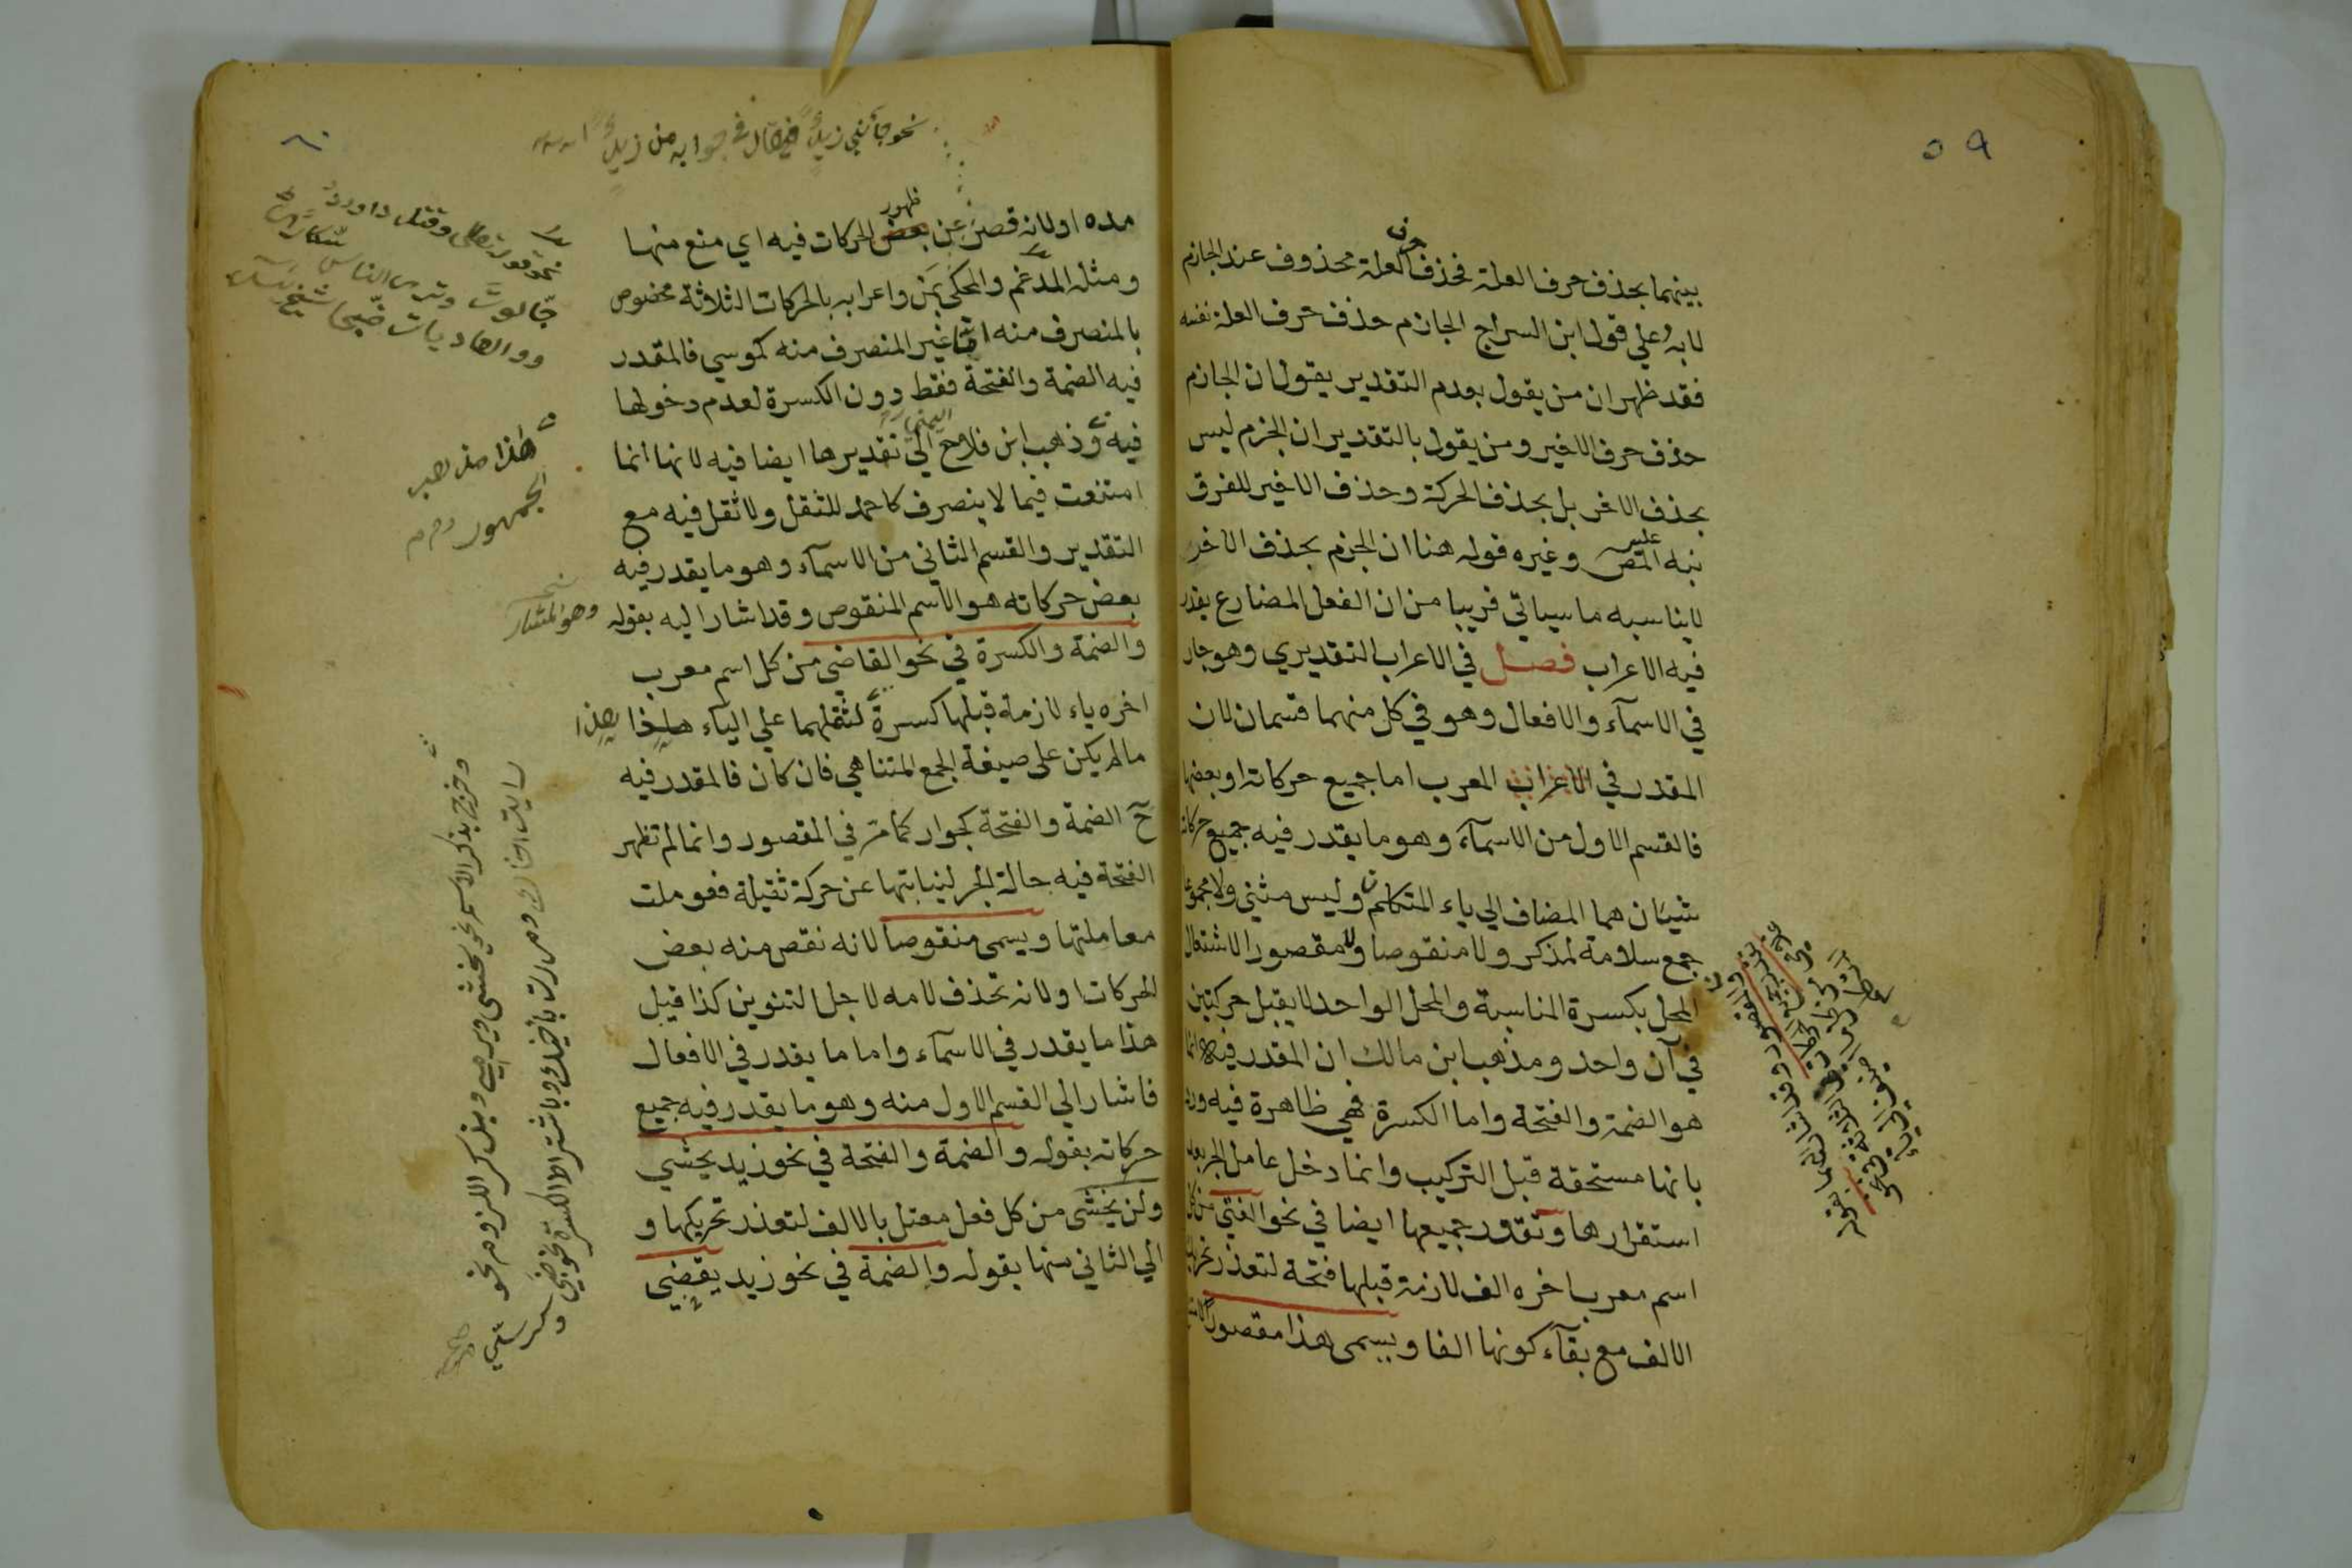 ٥٩
بينهما بحذف حرف العلة فحذف حرف العلة محذوف عند الجازم
لا به وعلي قول ابن السراج الجازم حذف حرف العلة نفسه
فقد ظهر ان من يقول بعدم التقدير يقول ان الجازم
حذف حرف الاخير ومن يقول بالتقدير ان الجزم ليس
بحذف الاخر بل بحذف الحركة وحذف الاخير للفرق
نبه عليه المص وغيره قوله هنا ان الجزم بحذف الاخر
لايناسبه ماسياتي قريبا من ان الفعل المضارع يقدر
فيه الاعراب فصل في الاعراب التقديري وهو جار
في الاسمآء والافعال وهو في كل منهما قسمان لان
المقدر في الاعراب المعرب اما جميع حركاته او بعضها
فالقسم الاول من الاسمآء وهو ما يقدر فيه جميع حركاته
شيئان هما المضاف الي ياء المتكلم وليس مثني ولا مجموعا
جمع سلامة لمذكر ولا منقوصا ولا مقصورا لاشتغال
المحل بكسرة المناسبة والمحل الواحد لايقبل حركتين
في آن واحد ومذهب ابن مالك ان المقدر فيه انما
هو الضمة والفتحة واما الكسرة فهي ظاهرة فيه ورد
بانها مستحقة قبل التركيب وانما دخل عامل الجر بعد
استقرارها وتقدر جميعها ايضا في نحو الفتي من كل
اسم معرب اخره الف لازمة قبلها فتحة لتعذر تحريك
الالف مع بقآء كونها الفا ويسمي هذا مقصورا
نحو جآءني زيد فيقال في جوابه من زيد
مده او لانه قصر عن بعض ظهور الحركات فيه اي منع منها
ومثله المدغم والمحكي بمن واعرابه بالحركات الثلاثة مخصوص
بالمنصرف منه اما غير المنصرف منه كموسي فالمقدر
فيه الضمة والفتحة فقط دون الكسرة لعدم دخولها
فيه وذهب ابن فلاح اليمني الي تقديرها ايضا فيه لانها انما
امتنعت فيما لا ينصرف كاحمد للثقل ولا ثقل فيه مع
التقدير والقسم الثاني من الاسمآء وهو ما يقدر فيه
بعض حركاته هو الاسم المنقوص وقد اشار اليه بقوله
والضمة والكسرة في نحو القاضي من كل اسم معرب
اخره ياء لازمة قبلها كسرة لثقلهما علي الياء هذا
مالم يكن على صيغة الجمع المتناهي فان كان فالمقدر فيه
ح الضمة والفتحة كجوار كما مر في المقصور وانما لم تظهر
الفتحة فيه حالة الجر لنيابتها عن حركة ثقيلة فعوملت
معاملتها ويسمى منقوصا لانه نقص منه بعض
الحركات او لانه تحذف لامه لاجل التنوين كذا قيل
هذا ما يقدر في الاسمآء واما ما يقدر في الافعال
فاشار الي القسم الاول منه وهو ما يقدر فيه جميع
حركاته بقوله والضمة والفتحة في نحو زيد يخشي
ولن يخشى من كل فعل معتل بالالف لتعذر تحريكها و
الي الثاني منها بقوله والضمة في نحو زيد يقضي
نحو قوله تعالى وقتل داوود
جالوت وترى الناس سكارى
والعاديات ضبحا
هذا مذهب
الجمهور
وهو المشار
هذا
وخرج بذكر الاسم نحو يخشى ويرمي وبذكر اللزوم نحو
رايت اخاك ومررت باخيك وباشتراط الكسرة نحو ظبي و